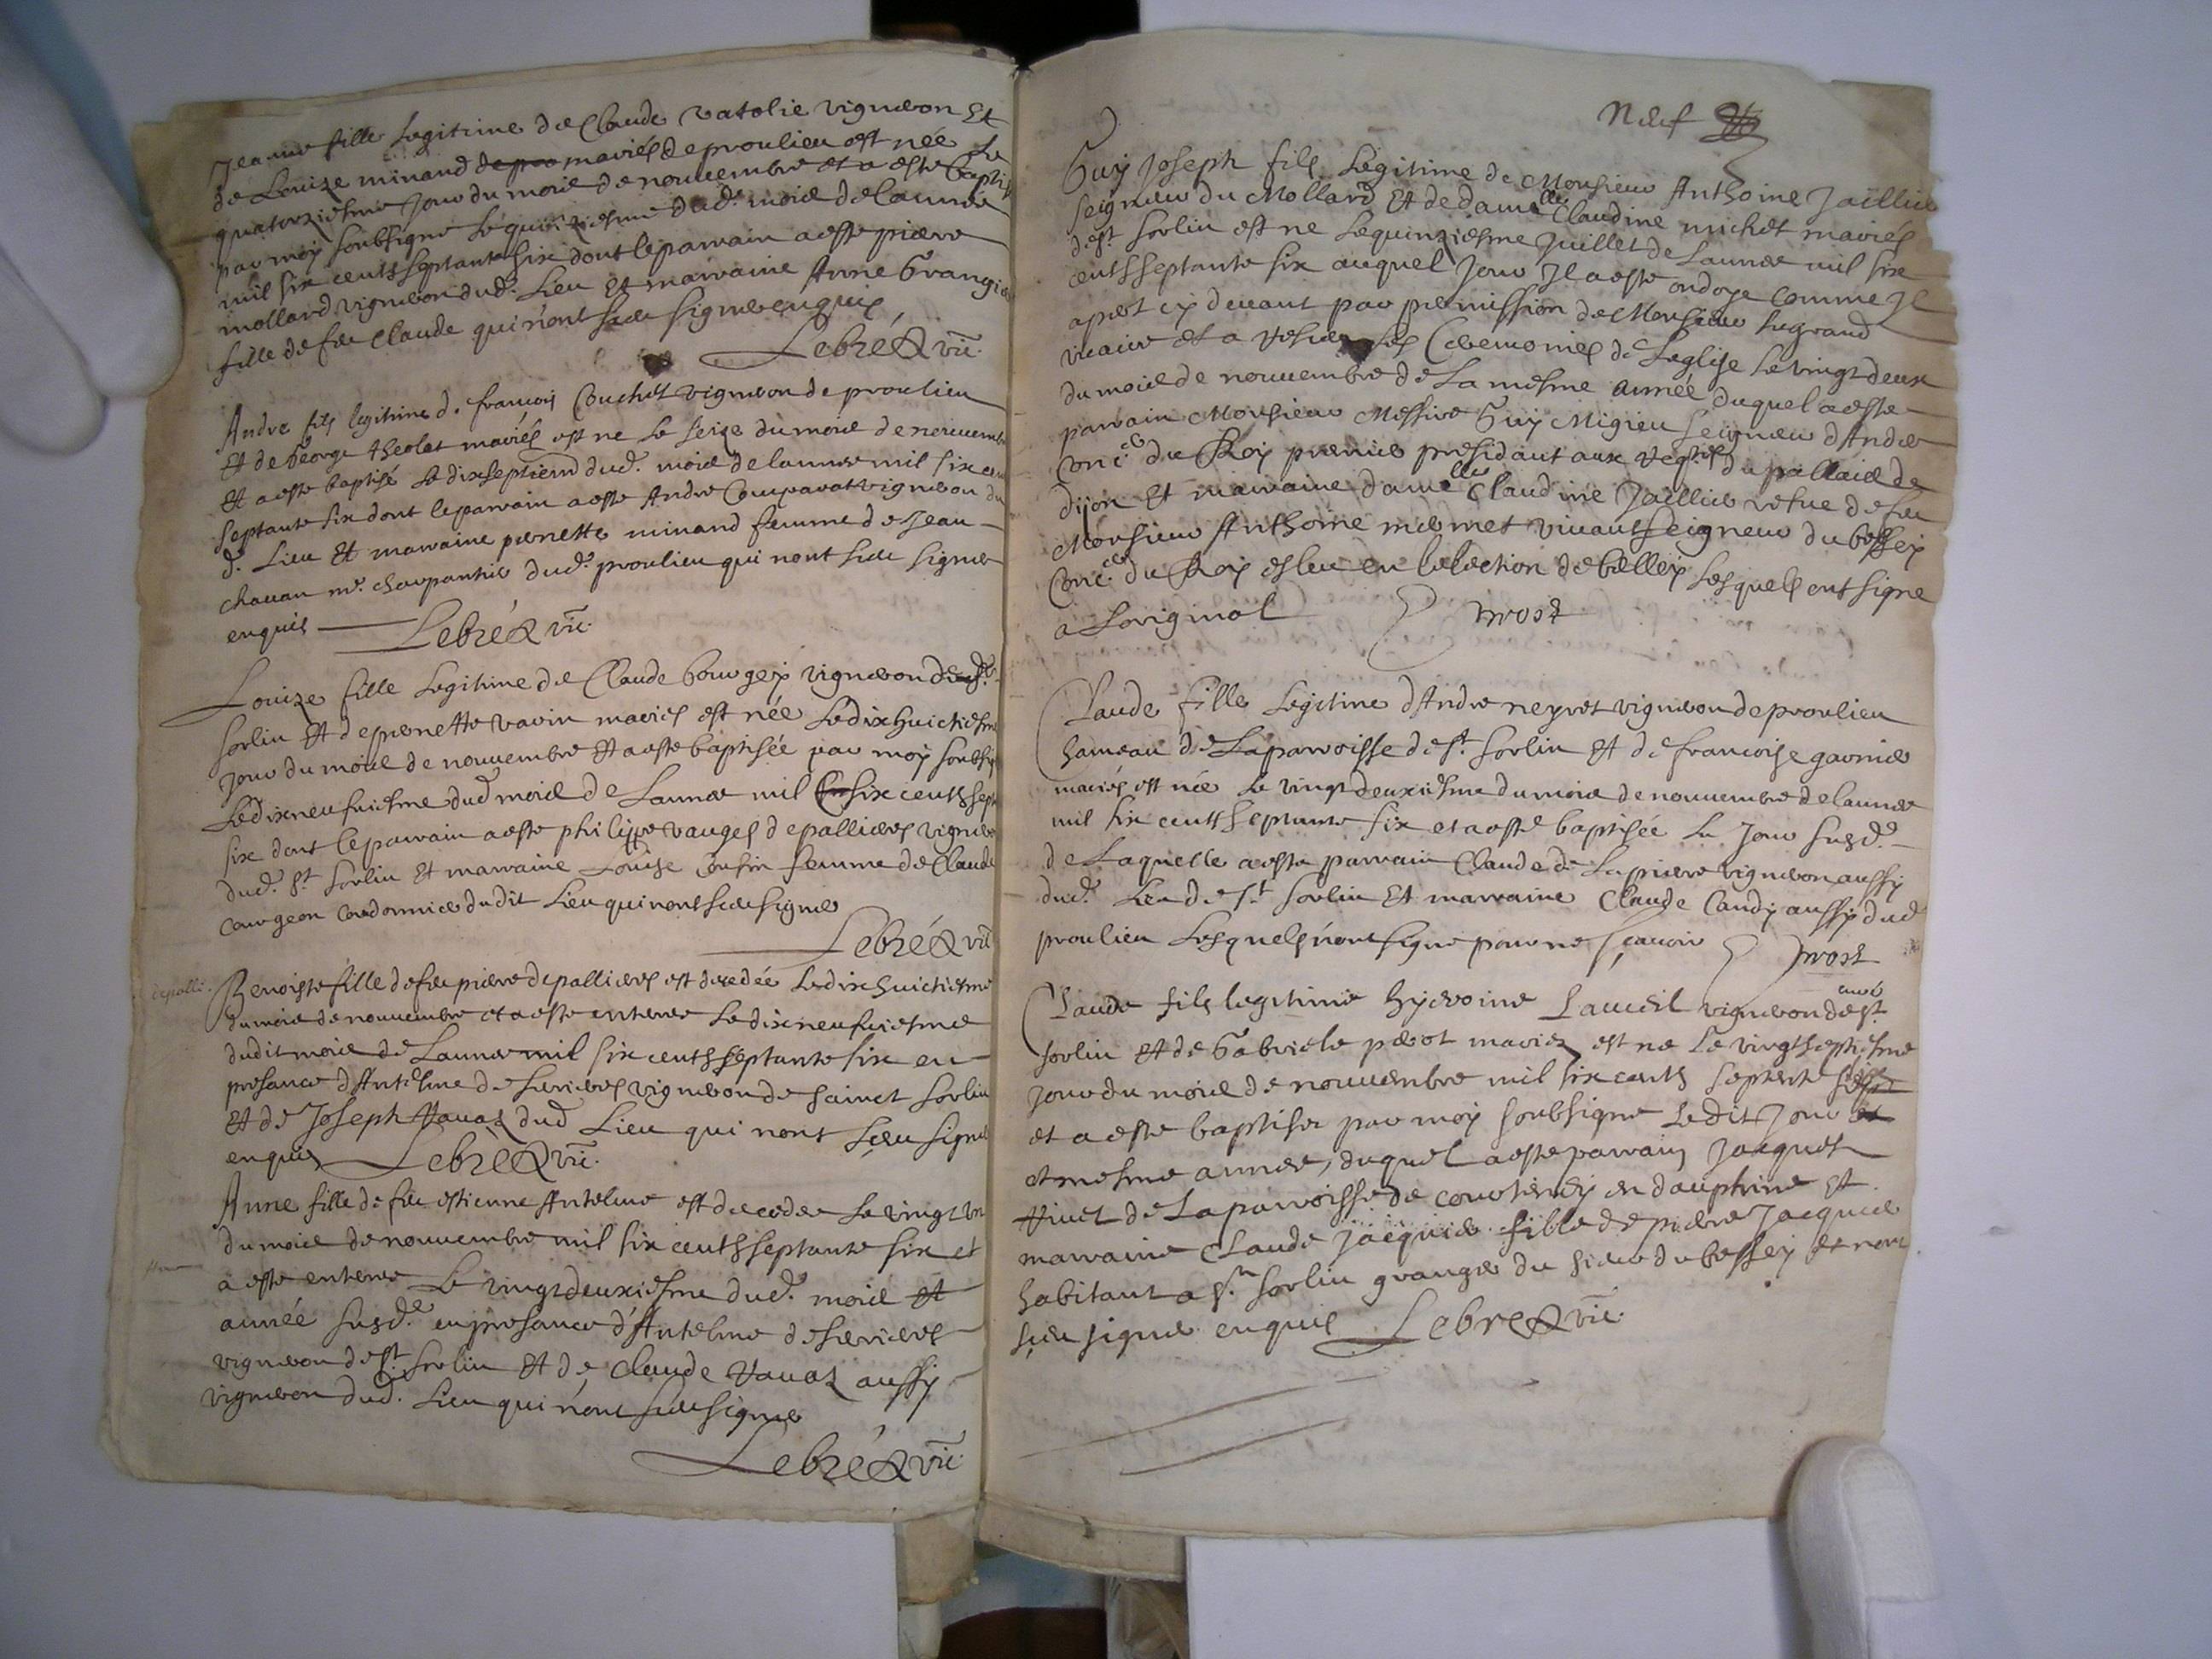 Jeanne fille legitime de Claude vatolie vigneron Et
de Louize minand mariés de proulieu est née Le
quatorziesme Jour du mois de nouuembre et a este baptisé
par moy soubsigne Le quinziesme dud. mois de lannee
mil six cents septante six dont le parrain a este piere
mollard vigneron dud. Lieu Et marraine Anne Grangie
fille de feu Claude qui n'ont sceu signer enquis
Lebré vic.
Andre fils legitime de francois Couchet vigneron de proulieu
Et de George theolet mariés est ne Le seize du mois de nouuembre
Et a este baptisé Le dixseptiem dud. mois de lannee mil six cents
septante six dont le parrain a este Andre Comparat vigneron du
d. Lieu Et marraine pernette minand femme de Jean
chauan me. charpantie dud. proulieu qui nont sceu signer
enquis Lebré vic.
Louize fille Legitime de Claude bourgey vigneron de st
sorlin Et de pernette varin mariés est née Le dix huictiesme
Jour du mois de nouuembre Et a este baptisée par moy soubsig
Le dix neufuiesme dud mois de Lannee mil six cents sept
six dont le parrain a este philippe vauges de pallieres vigneron
dud. st sorlin Et marraine Louise Cousin femme de Claude
Courgeon Cordonnier dudit Lieu qui nont sceu signer
Lebré vic
depalli.
Benoiste fille de feu piere de pallieres est decedée Le dix huictiesme
du mois de nouuembre et a este enterree Le dix neufuiesme
dudit mois de Lannee mil six cents septante six en
presance d'Antelme de serrieres vigneron de sainct sorlin
Et de Joseph Rauaz dud Lieu qui nont sceu signer
enquis Lebré vic.
Anne fille de feu estienne Antelme est decedee Le vingt un
du mois de nouuembre mil six cents septante six et
a este enterree Le vingtdeuxiesme dud. mois et
année susd.e en presance d'Antelme de serrieres
vigneron de st. sorlin Et de Claude Rauaz aussy
vigneron dud. Lieu qui n'ont sceu signer
Lebré vic.
Neuf
Guy Joseph fils Legitime de Monsieur Anthoine Jaillie
seigneur du Mollard Et de damelle Claudine michet mariés
de st. sorlin est ne Le quinziesme Juillet de Lannee mil six
cents septante six auquel Jour Il a este ondoye comme Il
apert cy deuant par permission de Monsieur Legrand
vicaire et a les Ceremonies de Leglise Le vingtdeux
du mois de nouuembre de La mesme année duquel a este
parrain Monsieur Messire Guy Migieu seigneur d'Andre
Con.er du Roy premier presidant aux req.tes du pallais de
dijon Et marraine damelle Claudine Jaillie vefue de feu
Monsieur Anthoine mermet viuant seigneur du bessey
Con.er du Roy esleu en lelection de belley Lesquels ont signe
a Loriginal prost
Claude fille Legitime d'Andre neyret vigneron de proulieu
hameau de La paroisse de st. sorlin Et de francoise garnier
mariés est née Le vingtdeuxiesme du mois de nouuembre de lannee
mil six cents septante six et a esté baptisée Le Jour susd.e
de Laquelle a este parrain Claude de La piere vigneron aussy
dud. Lieu de st sorlin Et marraine Claude Candy aussy dud
proulieu Lesquels n'ont signe pour ne sçauoir prost
Claude fils legitime hyeroime vigneron de st.
sorlin et de Gabriele perot mariez est ne Le vingtseptiesme
Jour du mois de nouuembre mil six cents septente
et a este baptiser par moy soubsigne Ledit Jour
et mesme annee, duquel a este parrain Jacques
Riuet de La paroisse de courteney en dauphine Et
marraine Claude Jacquier fille de piere Jacquier
habitant a st. sorlin granger du sieur du bessey et nont
sceu signer enquis Lebré vic.